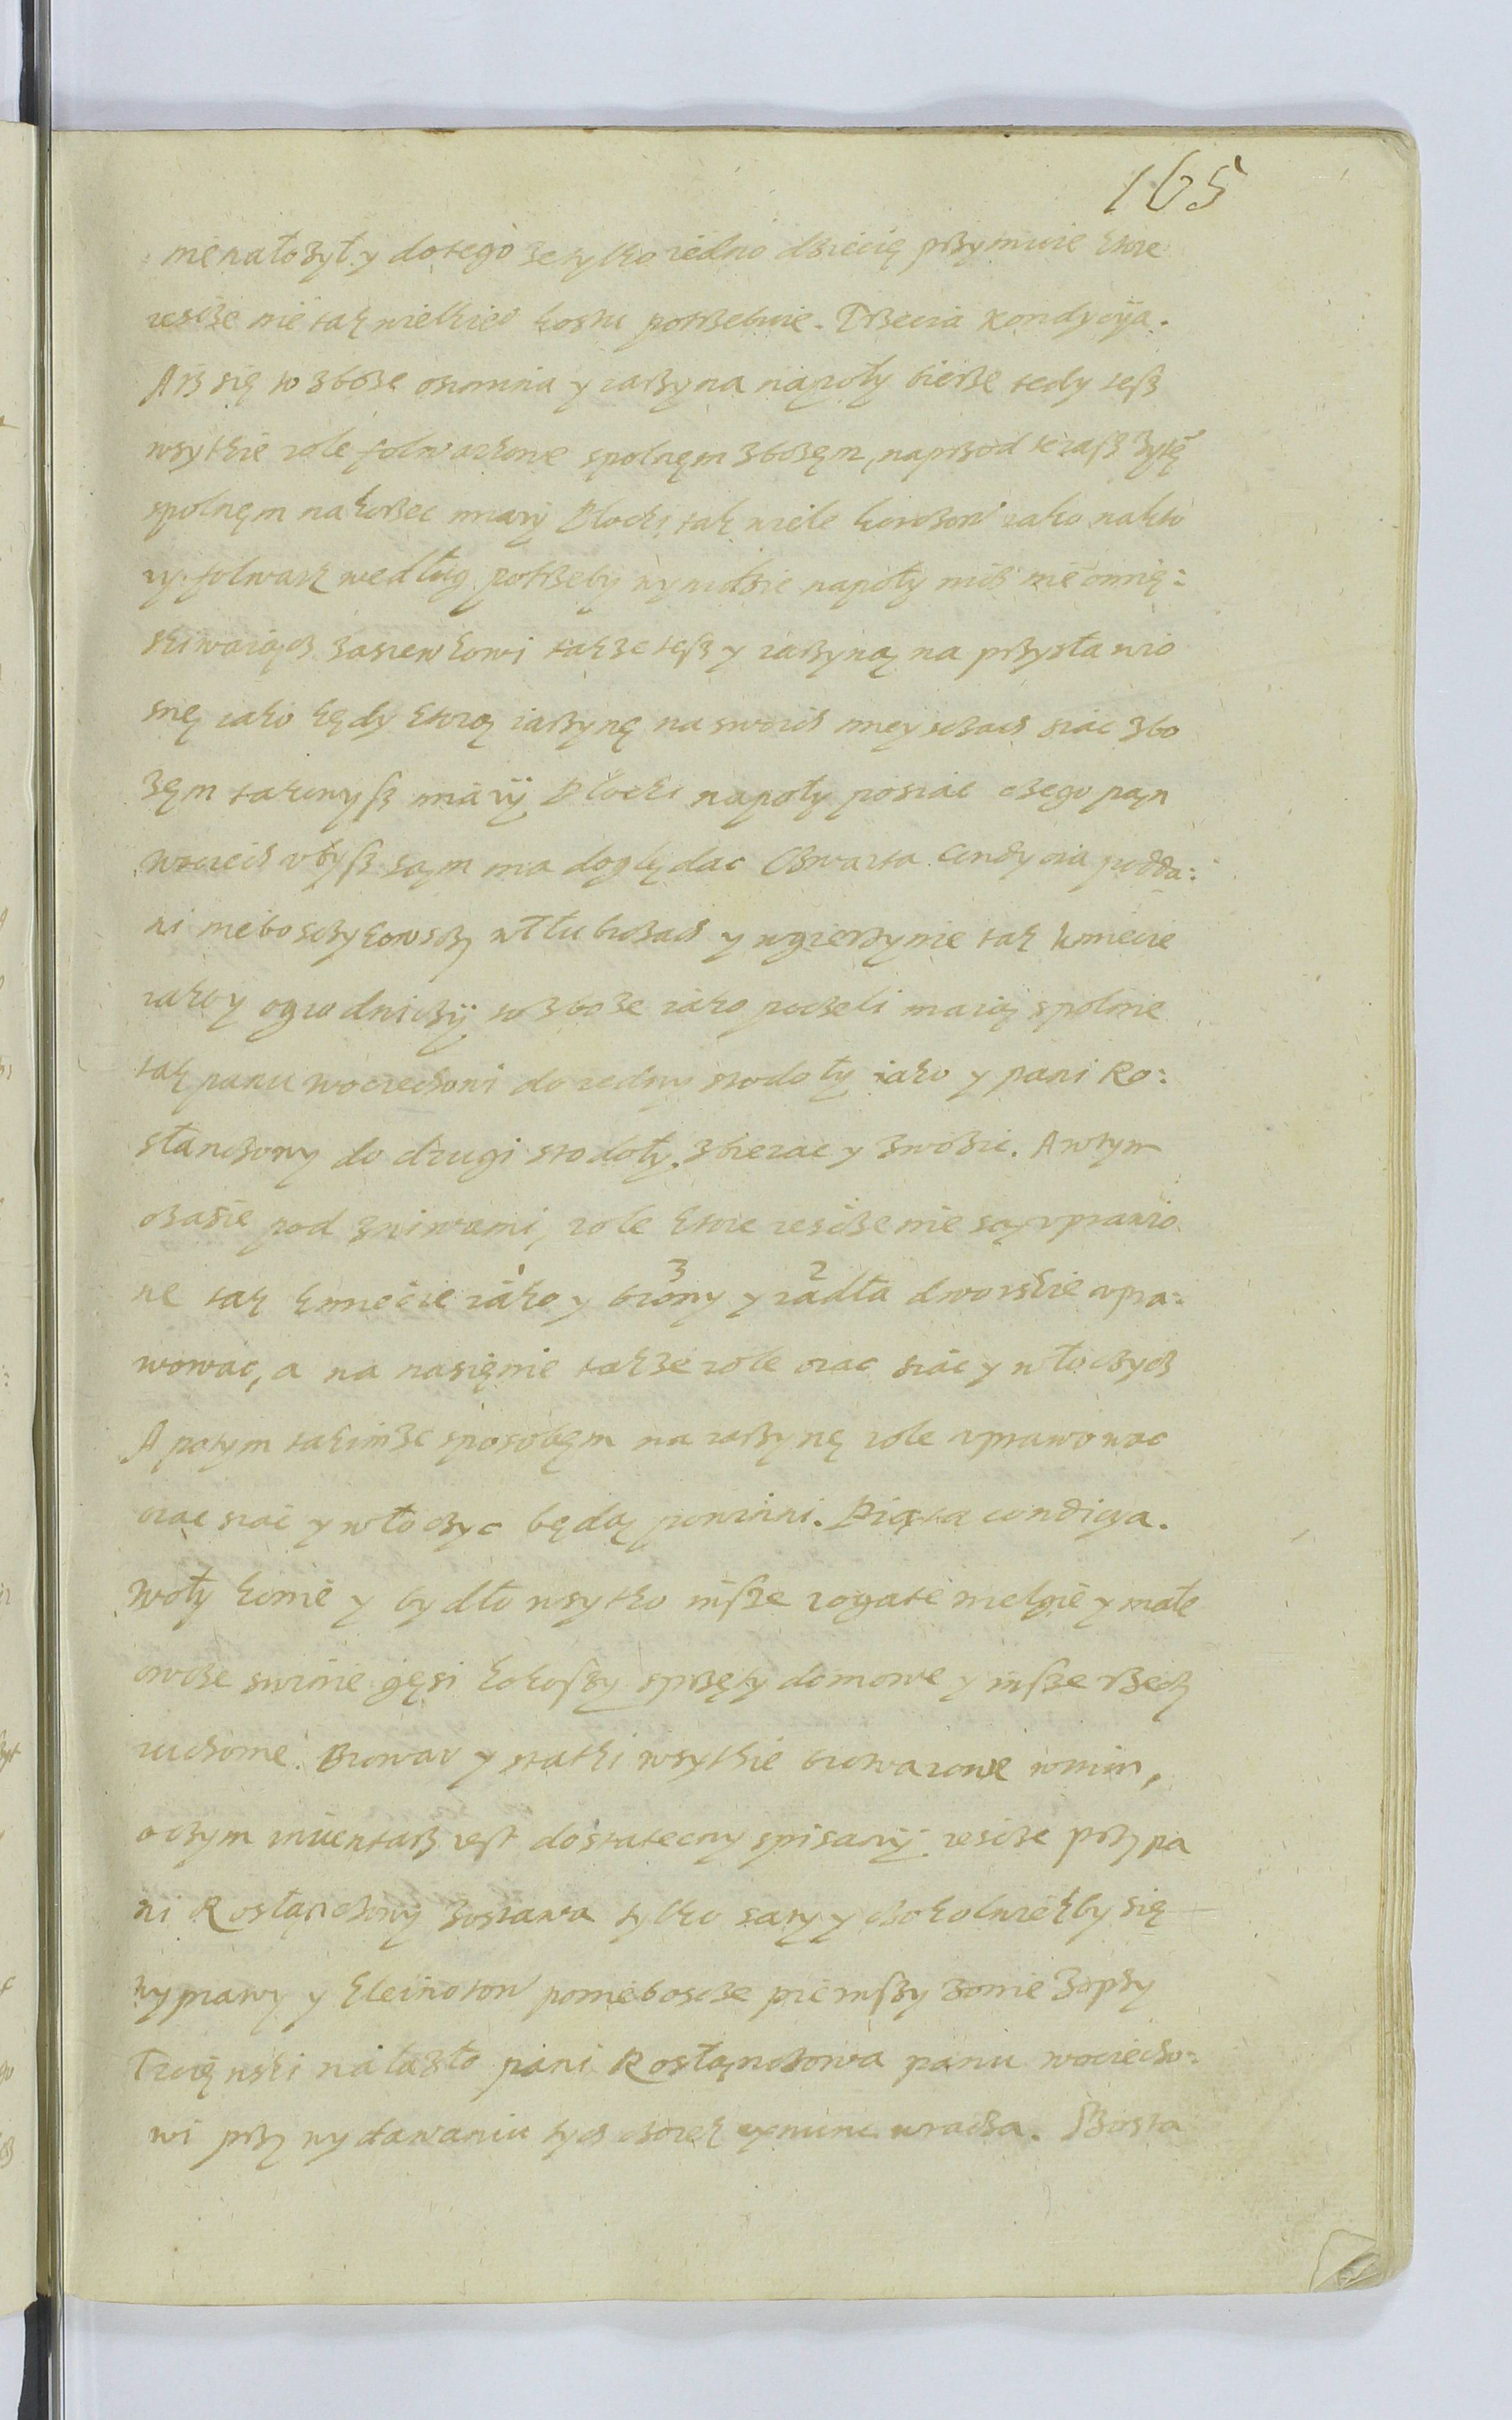 165
nie nałozył y do tego ze tylko iedno dziecię przymuie ktore
iescze nie tak wielkiego kosztu potrzebuie. Trzecia Kondycÿa.
Asz się to zboze ozimina y iarzyna napoły bierze tedy tesz
wsytkie role folwarkowe spolnęm zbozęm, naprzod teraz zytę
spolnęm na korzec miary Płocki, tak wiele korczow iako na kto
ry folwark według potrzeby wynidzie napoły nicz nie omię:
skiwaiącz zasiewkowi takze tesz y iarzyną na przysła wio
snę iako kędy ktorą iarzynę na swoich mieyscach siac zbo
zęm takowysz miarÿ Płocki napoły posiac czego pan
Wociech vbysz sąm ma doglądac Czwarta Condycia podda:
ni nieboscykowscy w Tłubicach y w gierzynie tak kmiecie
iako y ogrodniczÿ to zboze iako poczeli maią spolnie
tak panu Wociechowi do iedny stodoły iako y pani Ro:
stanczowy do drugi stodoły zbierac y zwozic. A wtym
czasie pod zniwami, role ktore iescze nie są vprawio
ne tak kmiecie iako y brony y radła dworskie vpra:
wowac, a na nasięnie takze role orac siac y włoczycz
A potym takimze sposobęm na iarzynę role vprawowac
orac siac y włoczyc będą powinni. Piąta condicya.
Woły konie y bydło wsytko insze rogate wielgie y małe
owcze swinie gęsi kokoszy sprzęty domowe y insze rzeczy
ruchome. Browar y statki wsytkie browarowe w nim,
o czym inwentarz iest dostatecny spisanÿ iescze przy pa
ni Rostanczowÿ zostawa tylko saty y czokolwiekby się
wyprawy y kleinotow po nieboscze pierwszy zonie Zophy
Trcięnski nalazło pani Rostąnczowa panu Wociecho:
wi przy wydawaniu tych corek ex nunc wracza. Szosta